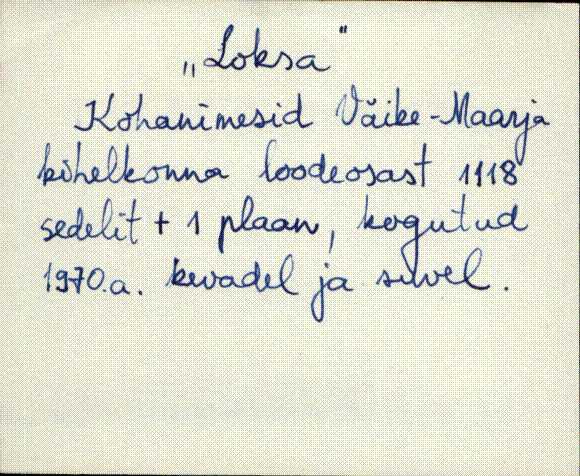 „Loksa"
Kohanimesid Väike-Maarja
kihelkonna loodeosast 1118
sedelit + 1 plaan, kogutud
1970.a. kevadel ja suvel.